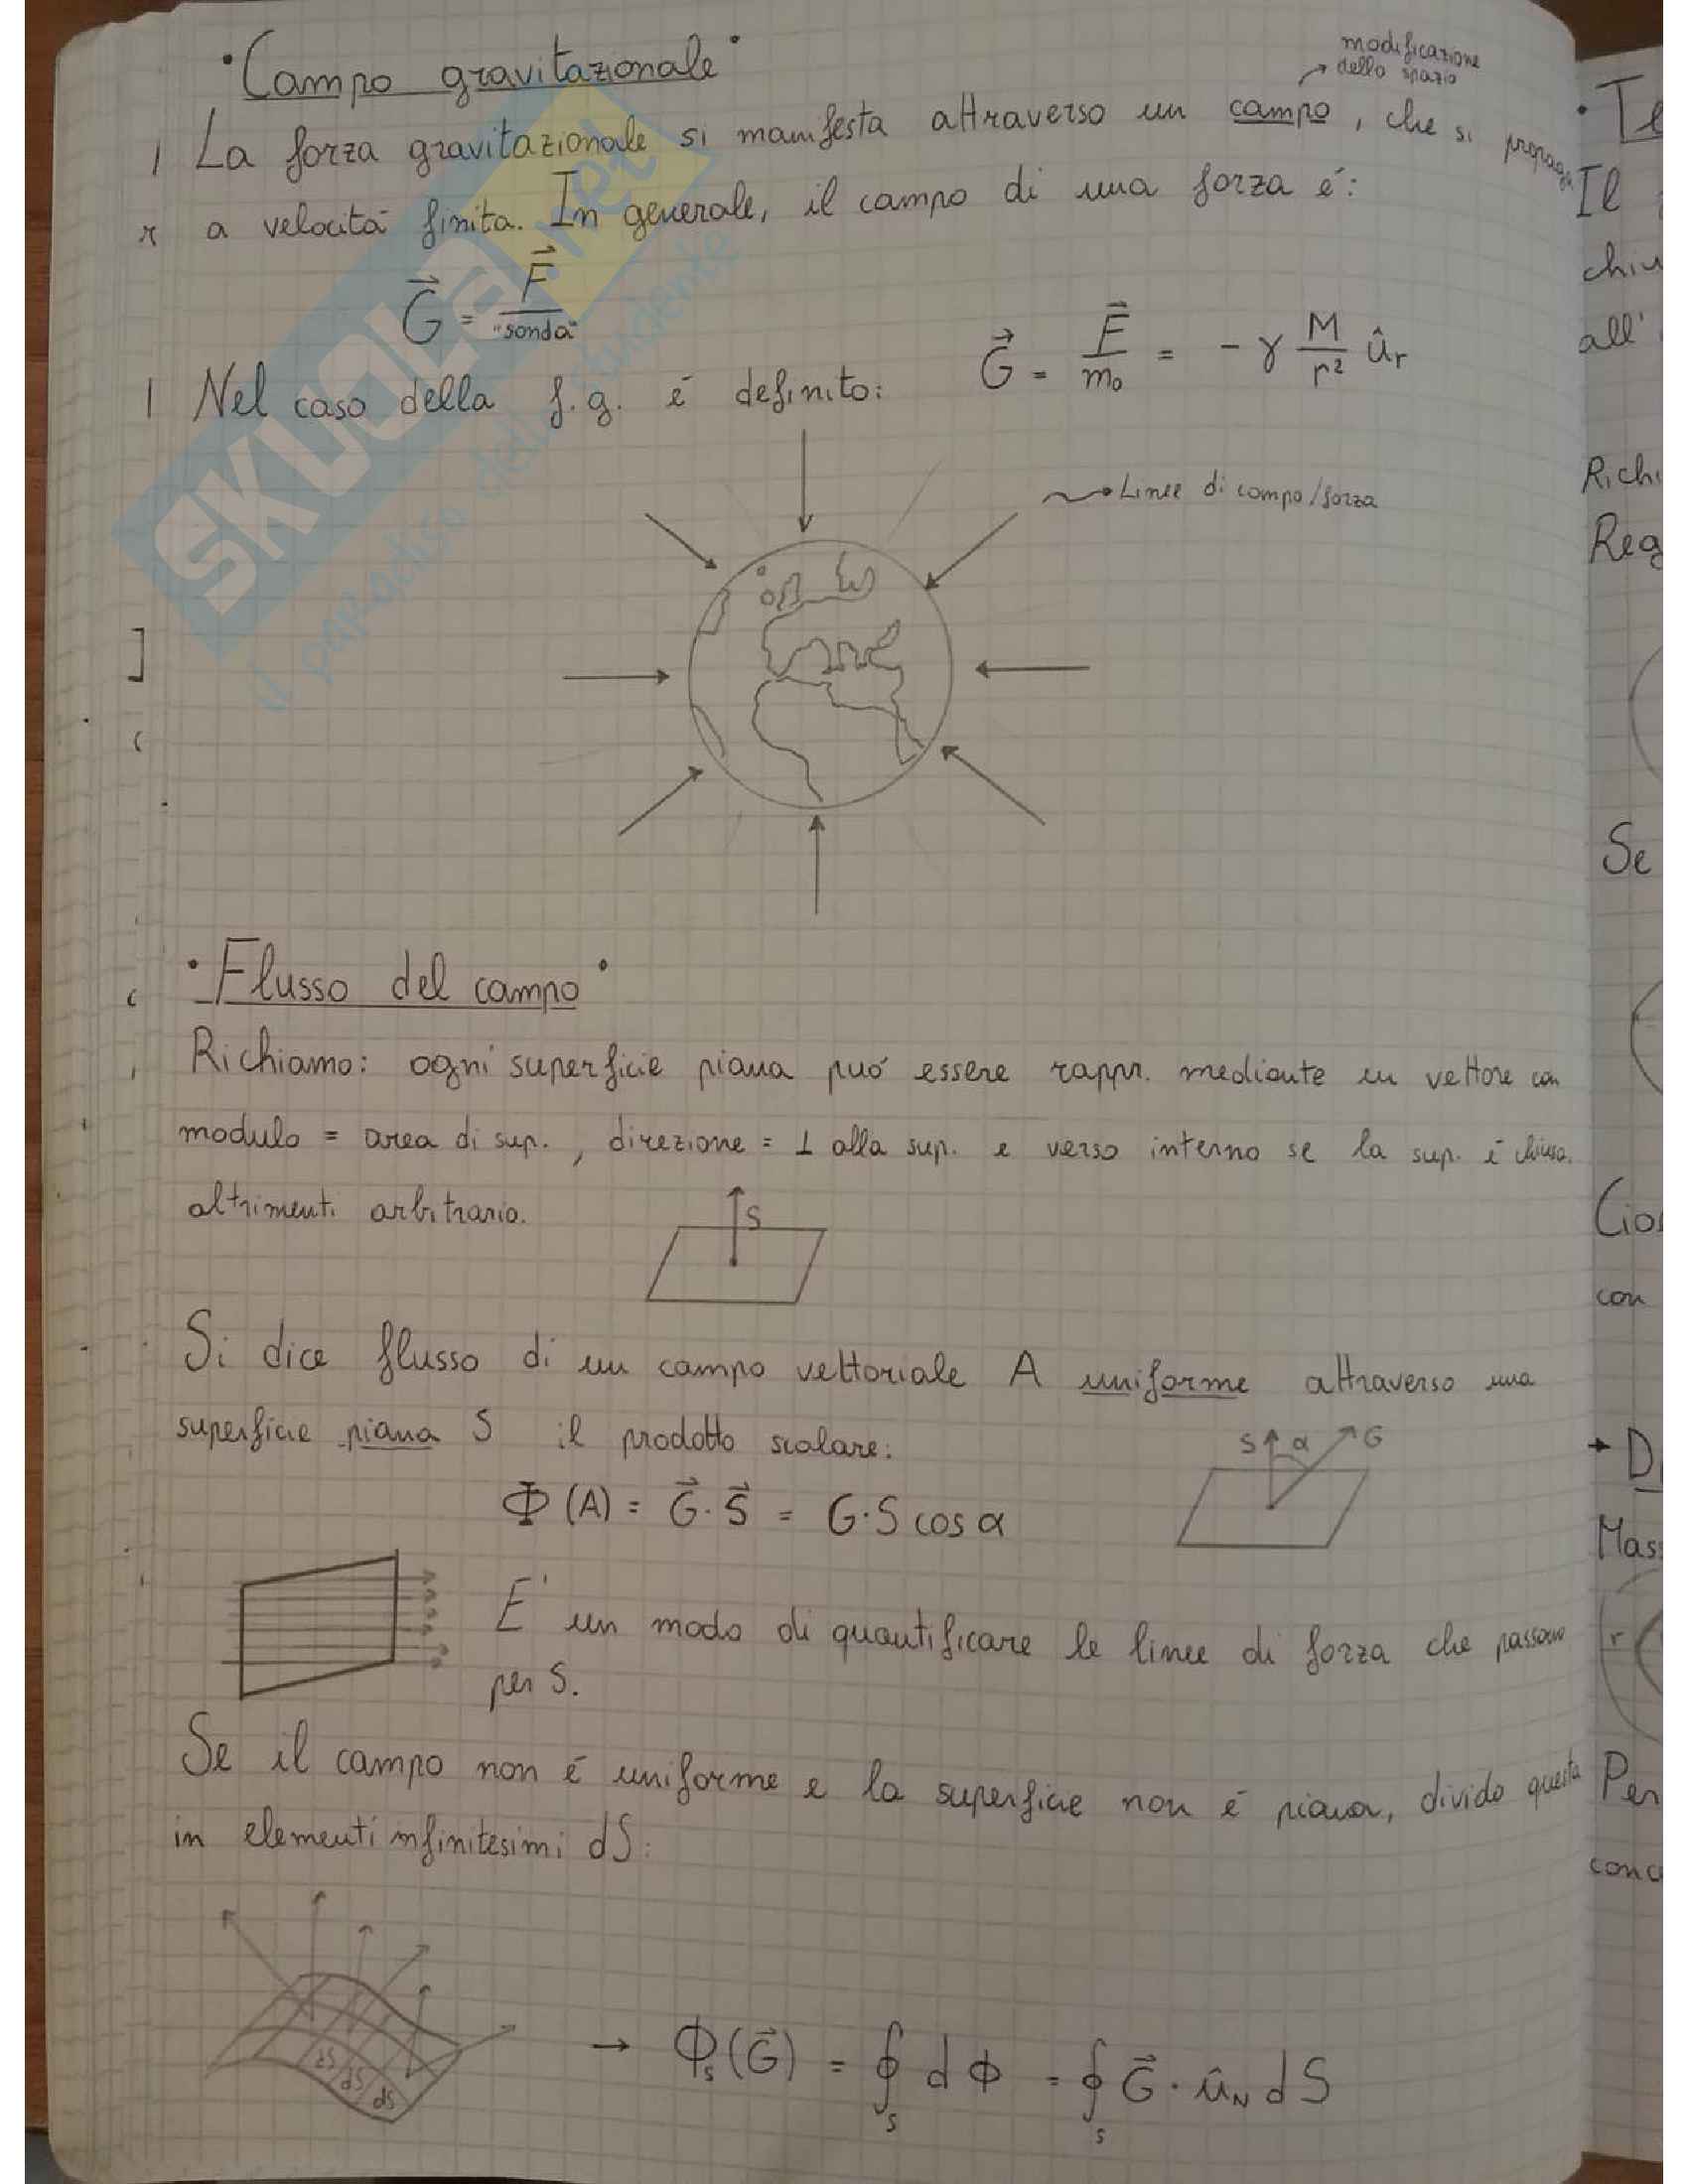 • Campo gravitazionale •
modificazione
dello spazio
La forza gravitazionale si manifesta attraverso un campo, che si propaga
a velocitá finita. In generale, il campo di una forza é:
G⃗ = F⃗ / "sonda"
Nel caso della f.g. é definito: G⃗ = F⃗ / m₀ = - γ M / r² û_r
Linee di campo/forza
• Flusso del campo •
Richiamo: ogni superficie piana puó essere rappr. mediante un vettore con
modulo = area di sup., direzione = ⊥ alla sup. e verso interno se la sup. é chiusa.
altrimenti arbitrario.
S
Si dice flusso di un campo vettoriale A uniforme attraverso una
superficie piana S il prodotto scalare:
S α G
Φ (A) = G⃗ · S⃗ = G·S cos α
E' un modo di quantificare le linee di forza che passano
per S.
Se il campo non é uniforme e la superficie non é piana, divido questa
in elementi infinitesimi dS:
dS dS dS
→ Φ_s(G⃗) = ∮_s dΦ = ∮_s G⃗ · û_N dS
Il
chiu
all'
Richi
Reg
Se
Cio
con
→ D
Mass
r
Per
conc
SKUOLA.net
il paradiso dello studente